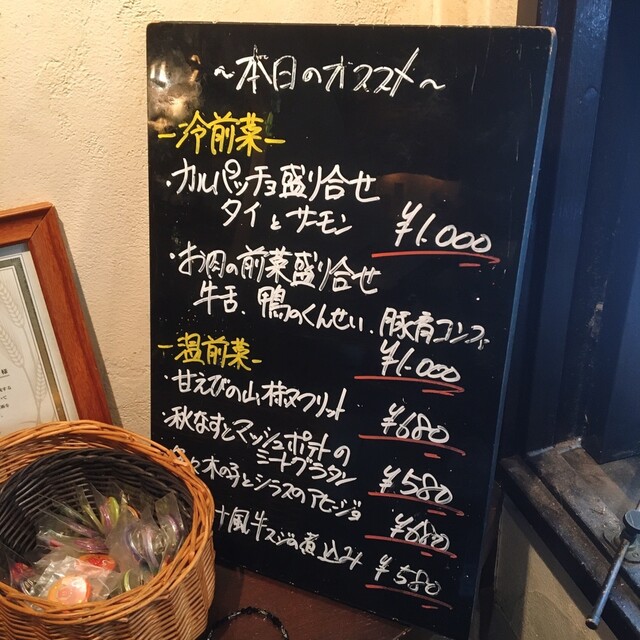 ～本日のオススメ～
－冷前菜－
・カルパッチョ盛り合せ
タイとサーモン
¥1.000
・お肉の前菜盛り合せ
牛舌、鴨のくんせい、豚肩コンフィ
¥1.000
－温前菜－
・甘えびの山椒フリット
¥680
・秋なすとマッシュポテトの
ミートグラタン
¥580
木の子とシラスのアヒージョ
¥680
風牛スジの煮込み
¥580